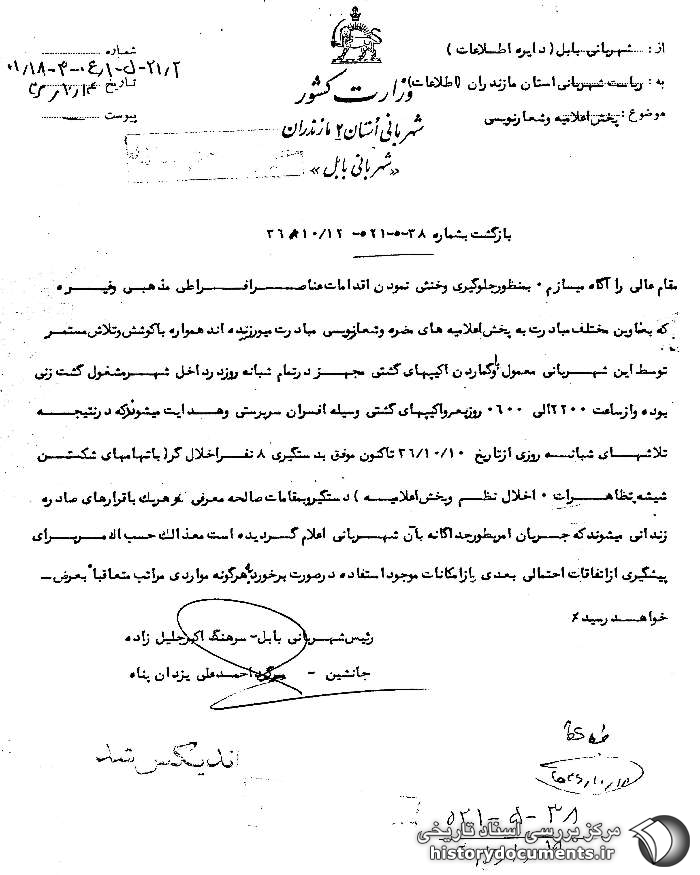 از : شهربانی بابل ( دایره اطلاعات )
به : ریاست شهربانی استان مازندران (اطلاعات)
موضوع : پخش اعلامیه و شعارنویسی
وزارت کشور
شهربانی استان ۲ مازندران
«شهربانی بابل»
شماره
تاریخ
پیوست
بازگشت بشماره ۳۸-۵-۵۲۱ - ۳۶/۱۰/۱۲
مقام عالی را آگاه میسازم ۰ بمنظور جلوگیری و خنثی نمودن اقدامات عناصر افراطی مذهبی وغیره
که بعناوین مختلف مبادرت به پخش اعلامیه های مضره وشعارنویسی مبادرت میورزیده اند همواره با کوشش وتلاش مستمر
توسط این شهربانی معمول و گماردن اکیپهای گشتی مجهز درتمام شبانه روز در داخل شهر مشغول گشت زنی
بوده واز ساعت ۲۲۰۰ الی ۰۶۰۰ روزبعر واکیپهای گشتی وسیله افسران سرپرستی وهدایت میشوند که درنتیجه
تلاشهای شبانه روزی از تاریخ ۳۶/۱۰/۱۰ تاکنون موفق بدستگیری ۸ نفر اخلال گر( باتهامهای شکستن
شیشه تظاهرات ۰ اخلال نظم وپخش اعلامیه ) دستگیر وبمقامات صالحه معرفی که هریک باقرارهای صادره
زندانی میشوند که جریان امر بطور جداگانه بآن شهربانی اعلام گردیده است معذالک حسب الامر برای
پیشگیری از اتفاقات احتمالی بعدی با از امکانات موجود استفاده درصورت برخورد به هرگونه مواردی مراتب متعاقبا" بعرض -
خواهد رسید ٪
رئیس شهربانی بابل - سرهنگ اکبر جلیل زاده
جانشین - سرگرد احمدعلی یزدان پناه
اندیکس شد
۵۲۱-۵-۳۸
مرکز بررسی اسناد تاریخی
historydocuments.ir